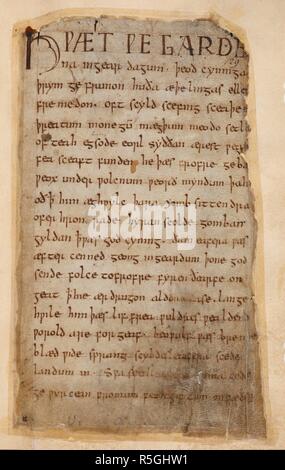 HǷÆT ǷE GARDE
na ingear dagum. þeod cyninga
þrym ge frunon huða æþelingas elle
fremedon. oft scyld scefing sceaþe
þreatum monegū mægþum meodo setl
of teah egsode eorl syððan ærest ƿear
fea sceaft funden he þæs frofre geb
ƿeox under ƿolcnum ƿeorð myndum þah
oð ꝥ him æghƿylc þara ymb sittendra
ofer hron rade hyran scolde gomban
gyldan ꝥ ƿæs god cyning. ðæm eafera ƿæs
æfter cenned geong ingeardum þone god
sende folce tofrofre fyren ðearfe on
geat ꝥ hie ær drugon aldor ase. lange
hƿile him þæs lif frea ƿuldres ƿealdend
ƿorold are forgeaf. beoƿulf ƿæs breme
blæd ƿide sprang scyldes eafera scede
landum in. Sƿa sceal uma gode
ge ƿyrcean fromum feoh giftum on fæder
alamy - R5GHW1